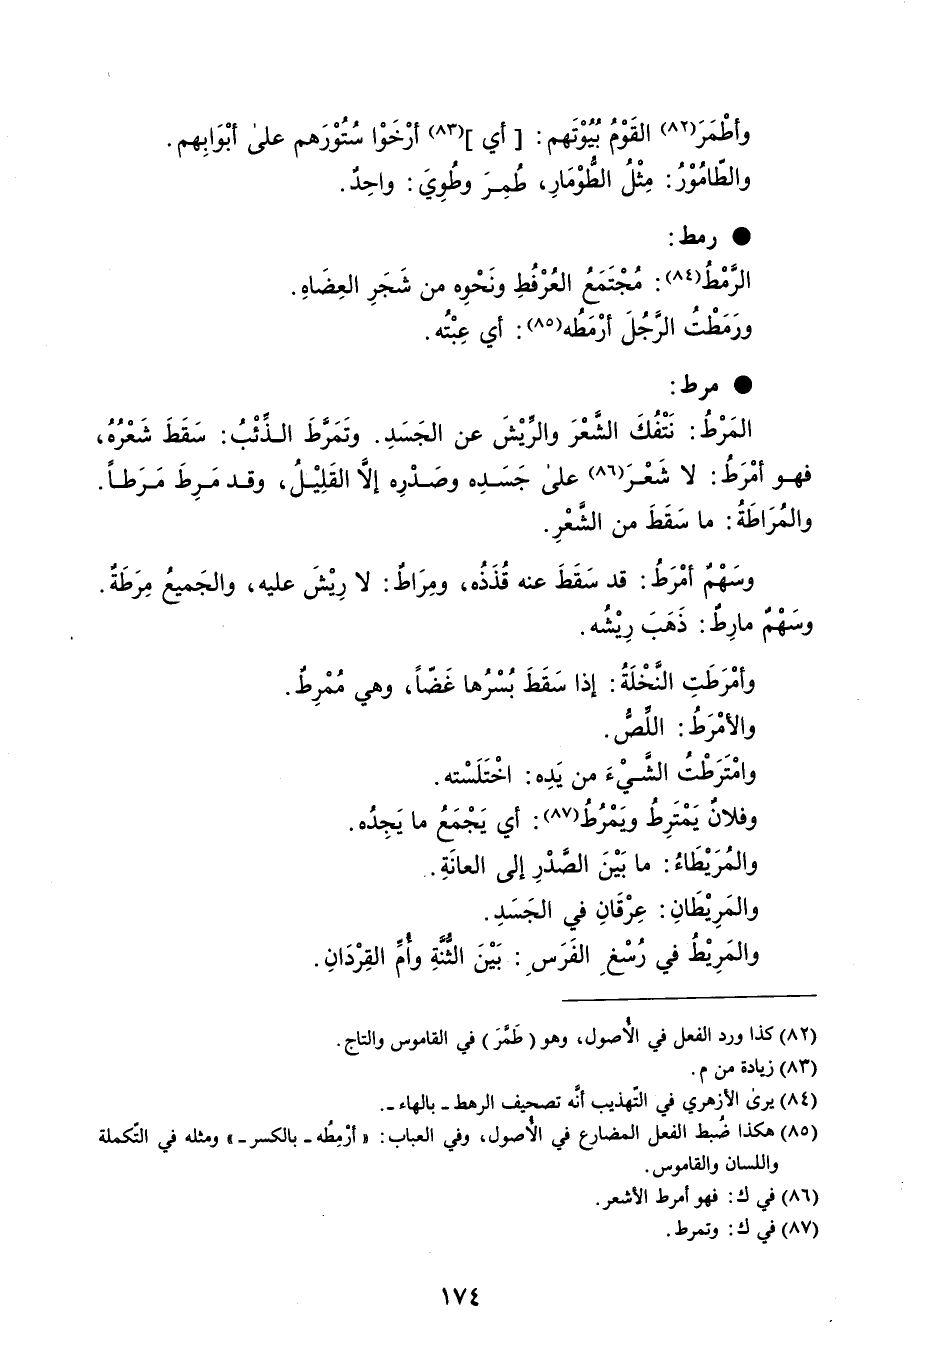 وأَطْمَرَ(٨٢) القَوْمُ بُيُوْتَهم: [ أي ](٨٣) أرْخَوْا سُتُوْرَهم على أبْوَابِهم.
والطّامُوْرُ: مِثْلُ الطُّوْمَارِ، طُمِرَ وطُوِيَ: واحِدٌ.
● رمط:
الرَّمْطُ(٨٤): مُجْتَمَعُ العُرْفُطِ ونَحْوِه من شَجَرِ العِضَاهِ.
ورَمَطْتُ الرَّجُلَ أرْمَطُه(٨٥): أي عِبْتُه.
● مرط:
المَرْطُ: نَتْفُكَ الشَّعْرَ والرِّيْشَ عن الجَسَدِ. وتَمَرَّطَ الذِّئْبُ: سَقَطَ شَعْرُهُ،
فهو أمْرَطُ: لا شَعْرَ(٨٦) على جَسَدِه وصَدْرِه إلَّا القَلِيْلُ، وقد مَرِطَ مَرَطاً.
والمُرَاطَةُ: ما سَقَطَ من الشَّعْرِ.
وسَهْمٌ أمْرَطُ: قد سَقَطَ عنه قُذَذُه، ومِرَاطٌ: لا رِيْشَ عليه، والجَميعُ مِرَطَةٌ.
وسَهْمٌ مارِطٌ: ذَهَبَ رِيْشُه.
وأمْرَطَتِ النَّخْلَةُ: إذا سَقَطَ بُسْرُها غَضّاً، وهي مُمْرِطٌ.
والأمْرَطُ: اللِّصُّ.
وامْتَرَطْتُ الشَّيْءَ من يَدِه: اخْتَلَسْته.
وفلانٌ يَمْتَرِطُ ويَمْرُطُ(٨٧): أي يَجْمَعُ ما يَجِدُه.
والمُرَيْطَاءُ: ما بَيْنَ الصَّدْرِ إلى العانَةِ.
والمَرِيْطَانِ: عِرْقَانِ في الجَسَدِ.
والمَرِيْطُ في رُسْغِ الفَرَسِ: بَيْنَ الثُّنَّةِ وأُمِّ القِرْدَانِ.
(٨٢) كذا ورد الفعل في الأُصول، وهو ( طَمَّرَ ) في القاموس والتاج.
(٨٣) زيادة من م.
(٨٤) يرى الأزهري في التّهذيب أنَّه تصحيف الرهط ـ بالهاء ـ.
(٨٥) هكذا ضُبط الفعل المضارع في الأُصول، وفي العباب: « أرْمِطُه ـ بالكسر ـ » ومثله في التّكملة
واللسان والقاموس.
(٨٦) في ك: فهو أمرط الأشعر.
(٨٧) في ك: وتمرط.
١٧٤